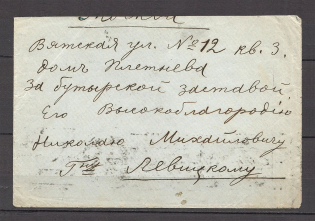 Москвѣ
Вятская ул. №12 кв. 3.
домъ Плетнева
За бутырской заставой
Его Высокоблагородію
Николаю Михайловичу
Гну Левицкому